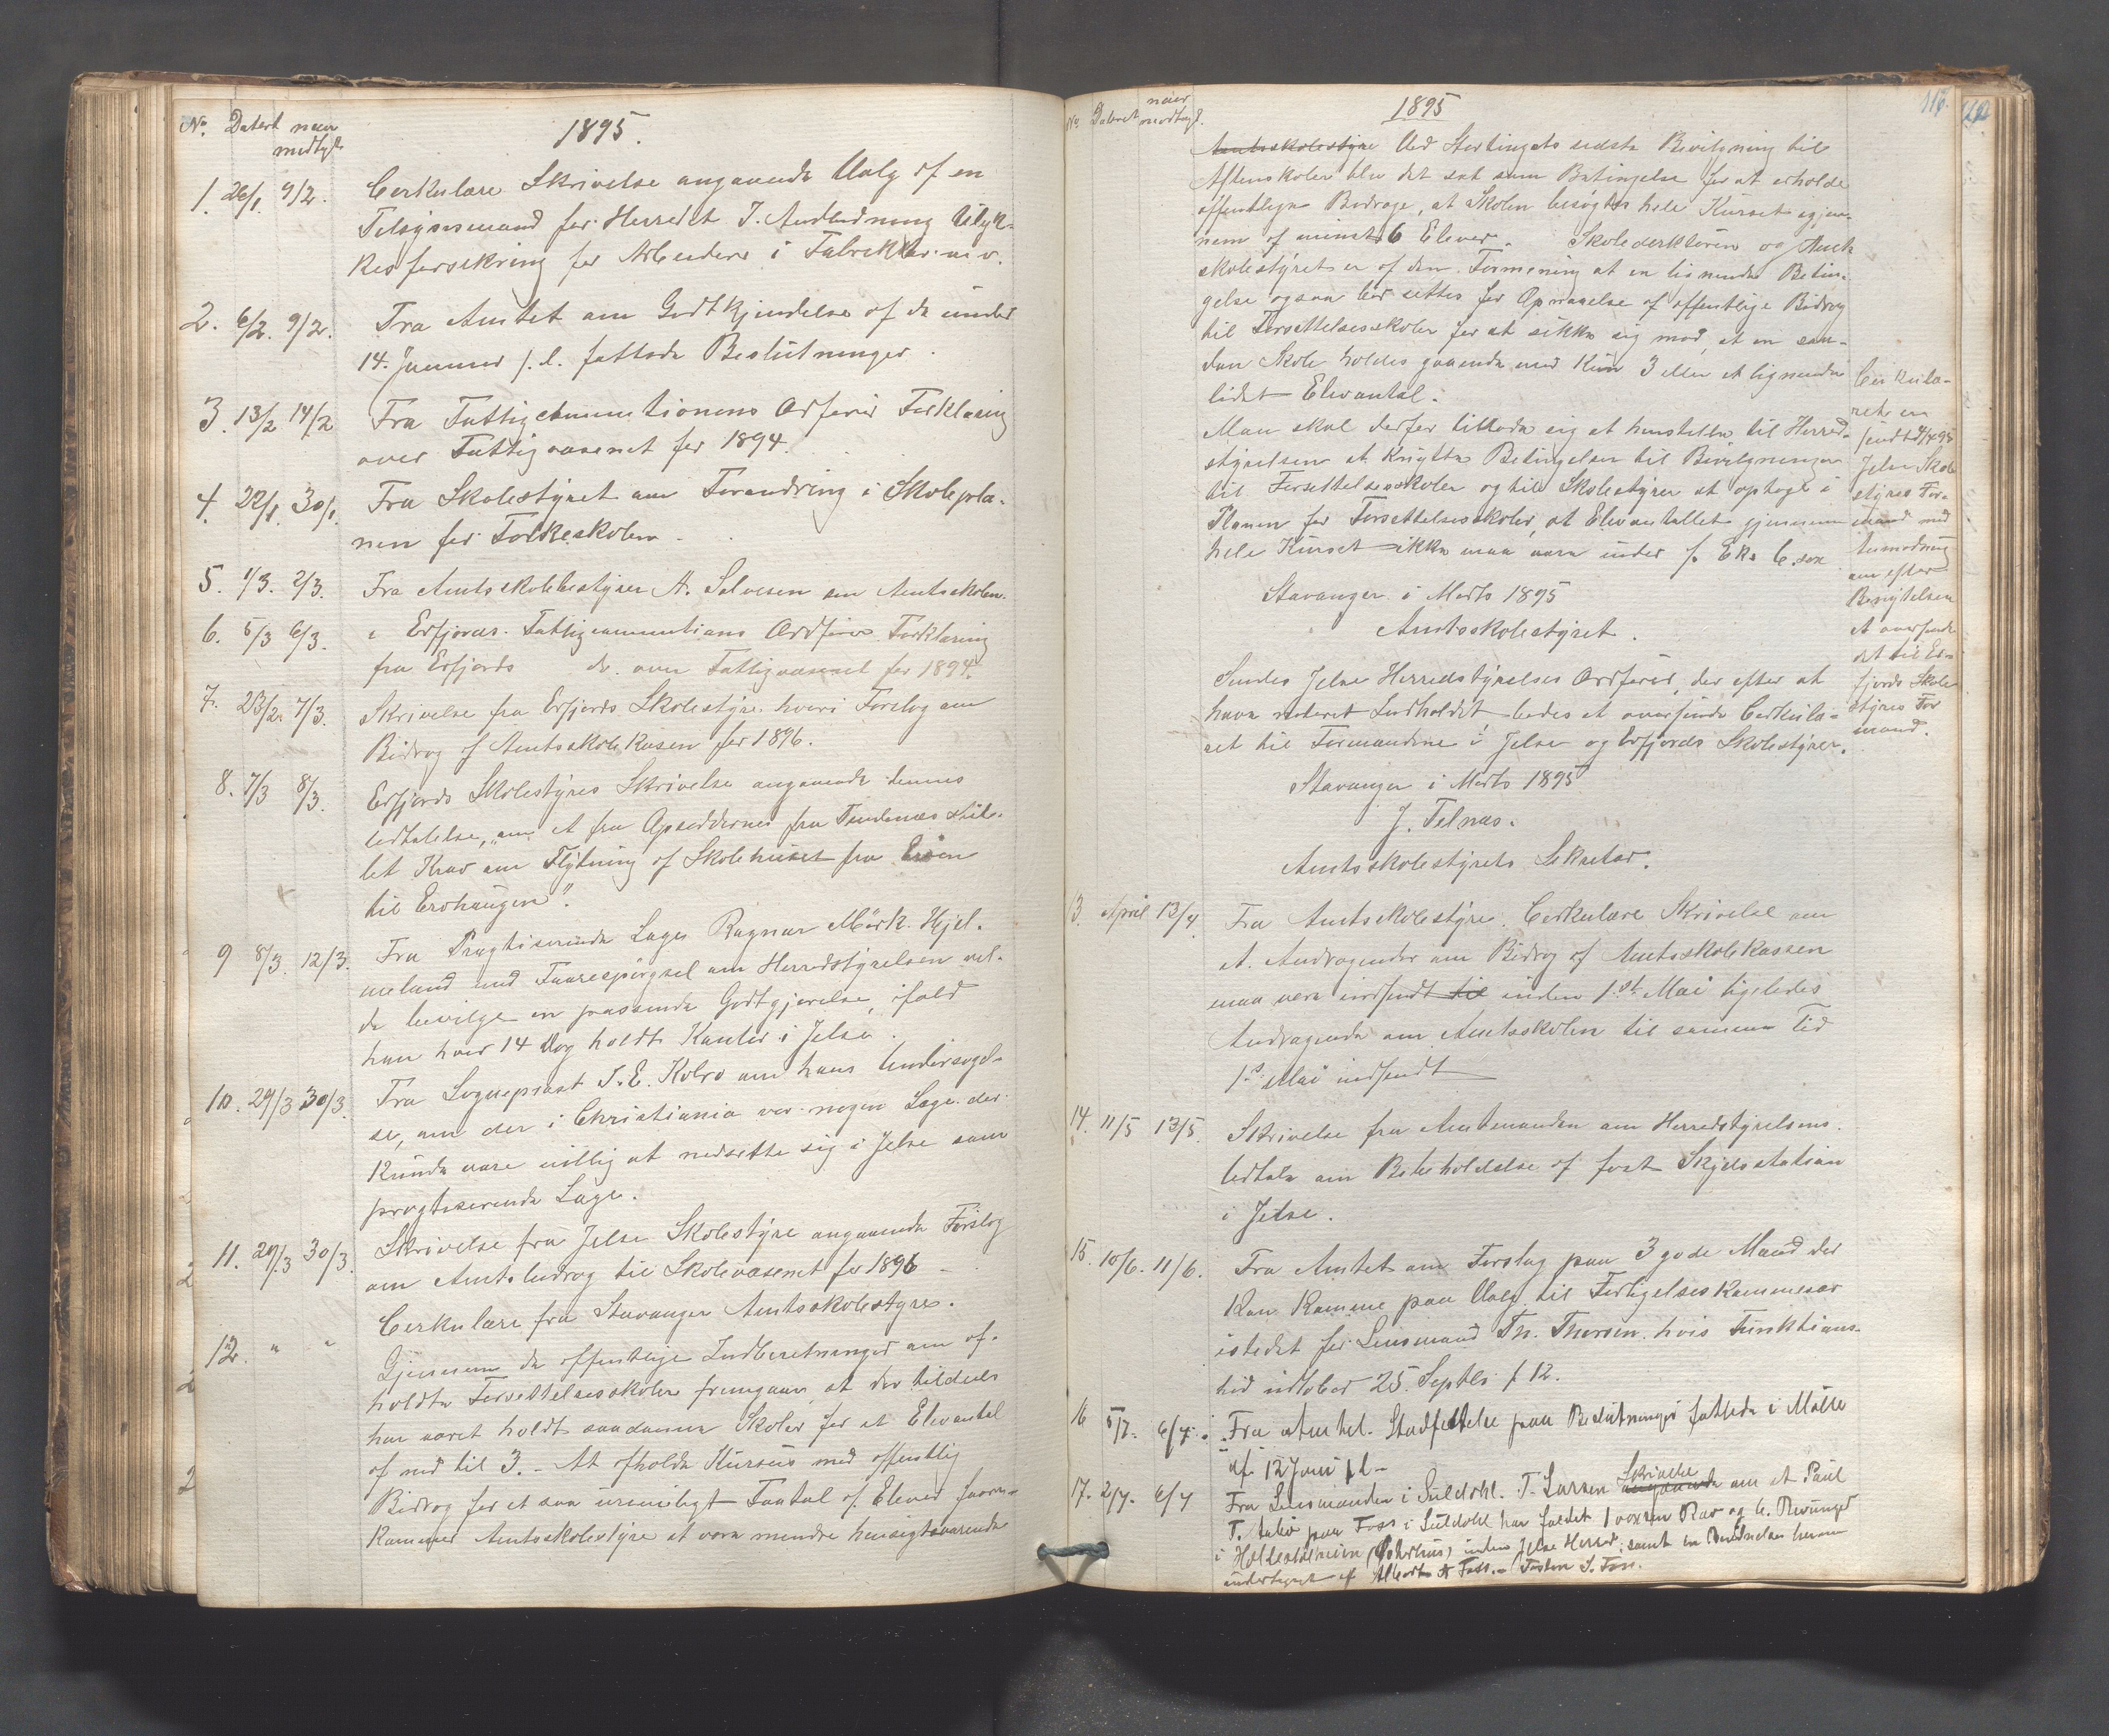 No. Datert naar modtgt.
1895.
1. 26/1. 9/2. Cerkulære Skrivelse angaaende Valg af en
Tilsynsmand for Herredet I. Anledning Ulyk-
kesforsikring for Arbeidere i Fabrikker m. v.
2. 6/2. 9/2. Fra Amtet om Godtkjendelse af de under
14. Januar f. l. fattede Beslutninger.
3. 13/2 14/2 Fra Fattigcommitionens Ordfører Forklaring
over Fattigvæsenet for 1894.
4. 22/1. 30/1. Fra Skolestyret om Forandring i Skolepla-
nen for Folkeskolen.
5. 1/3. 2/3. Fra Amtsskolebestyrer A. Salvesen om Amtsskolen.
6. 5/3 6/3. Erfjords. Fattigcommitions Ordfører Forklaring
fra Erfjords do. over Fattigvæsenet for 1894.
7. 23/2. 7/3. Skrivelse fra Erfjords Skolestyre hvori Forslag om
Bidrag af Amtsskolekasen for 1896.
8. 7/3 8/3. Erfjords Skolestyres Skrivelse angaaende dennes
Udtalelse, „om et fra Opsidderne fra Tindenæs stil-
let Krav om Flytning af Skolehuset fra Erøen
til Erøhaugen".
9 8/3. 12/3. Fra Pragtiserende Læge Ragnar Mörk. Hjel-
meland med Foorespörgsel om Herredstyrelsen vel-
de bevilge en passende Godtgjørelse, ifald
han hver 14 Dag holdt Kontor i Jelse.
10. 29/3 30/3. Fra Sogneprest J. E. Kolro om hans Undersøgel-
se, om der i Christiania var nogen Læge der
Kunde være villig at nedsette sig i Jelse som
pragtiserende Læge.
11. 29/3 30/3. Skrivelse fra Jelse Skolestyre angaaende Forslag
om Amtsbidrag til Skolevæsenet for 1896
12. " " Cerkulære fra Stavanger Amtsskolestyre.
Gjennem de offentlige Indberetninger om af-
holdte Forsettelsesskoler fremgaar, at der tildels
har været holdt saadanne Skoler for et Elevantal
af ned til 3. - At afholde Kursus med offentlig
Bidrag for et saa urimeligt Faatal af Elever forre-
kommer Amtsskolestyre at vera mindre hensigtsvarende
No Datert naar modtagt.
1895
116.
Amtsskolestyre Ved Stortingets sedste Bevilgning til
Aftenskoler blev det sat som Betingelse for at erholde
offentligt Bidrage, at Skolen besøgtes hele Kurset igjen-
nem af minst 6 Elever. Skolederktören og Amts
skolestyret er af den Formening at en lignende Betin-
gelse ogsaa bör settes for Opnaaelse af offentlige Bidrag
til Forsettelsesskoler for at sikke sig mod, at en saa-
dan Skole holdes gaaende med Kun 3 eller et lignende
lidet Elevantal.
Man skal derfor tillade sig at henstille til Herred-
styrelsen at Knytte Betingelser til Bevilgninger
til Forsettelsesskoler og til Skolestyrer at optage i
Planen for Forsettelsesskoler, at Elevantallet gjennem
hele Kurset ikke maa være under f. Eks 6. sex
Stavanger i Marts 1895
Amtsskolestyret.
Sendes Jelse Herredstyrelses Ordfører, der efter at
have noteret Indholdet, bedes at oversende Cerkula-
ret til Formændene i Jelse og Erfjords Skolestyrer.
Stavanger i Marts 1895
J. Telnæs.
Amtsskolestyrets Sekretær.
Cerkula-
ret er
sendt 4/4 95
Jelse Skole
styres For-
mand med
Anmodning
om efter
Benyttelsen
at oversende
det til Er-
fjords Skole
styres For
mand.
13. April 13/4 Fra Amtsskolestyre. Cerkulære Skrivelse om
at. Andragender om Bidrag af Amtsskolekassen
maa vera indsendt til inden 1.st Mai ligeledes
Andragende om Amtsskolen til samme Tid
1.st Mai indsendt
14. 11/5 13/5. Skrivelse fra Amtmanden om Herredstyrelsens.
Udtale om Bebeholdelse af fast Skjdsstation
i Jelse.
15. 10/6. 11/6. Fra Amtet om Forslag paa 3 gode Mænd der
Kan Komme paa Valg til Forligelseskommesær
istedet for Lensmand Th. Thorsen. hvis Funktions-
tid udlober 25. Septbr. f 12.
16 5/7. 6/7. Fra Amtet. Stadfestelse paa Beslutninger fattede i Møte
af 12 Juni f l -
17. 2/7. 6/7 Fra Lensmanden i Suldohl. T. Larsen Skrivelse angaaende om at Paul
T. paa Foss i Suldohl har faldet 1 voxsen Rav og 6. Revunger
i inden Jelse Herred, samt en herom
af Albert A Foss. - Torsten S. Foss.